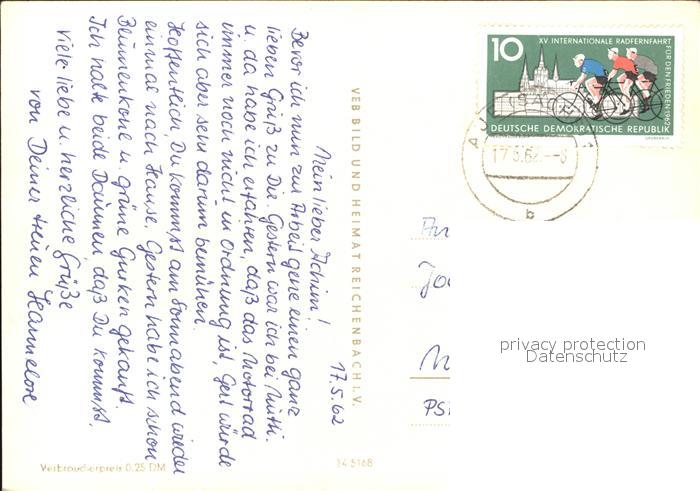 17.5.62
Mein lieber Achim!
Bevor ich nun zur Arbeit gehe einen ganz
lieben Gruß zu Dir. Gestern war ich bei Mutti
u. da habe ich erfahren, daß das Motorrad
immer noch nicht in Ordnung ist, Gert würde
sich aber sehr darum bemühen.
Hoffentlich, Du kommst am Sonnabend wieder
einmal nach Hause. Gestern habe ich schon
Blumenkohl u. grüne Gurken gekauft.
Ich halte beide Daumen, daß Du kommst.
Viele liebe u. herzliche Grüße
von Deiner treuen Hannelore
VEB BILD UND HEIMAT REICHENBACH I. V.
Verbraucherpreis 0,25 DM
14 5168
10
XV. INTERNATIONALE RADFERNFAHRT
FÜR DEN FRIEDEN 1962
DEUTSCHE DEMOKRATISCHE REPUBLIK
17.5.62.--8
b
privacy protection
Datenschutz